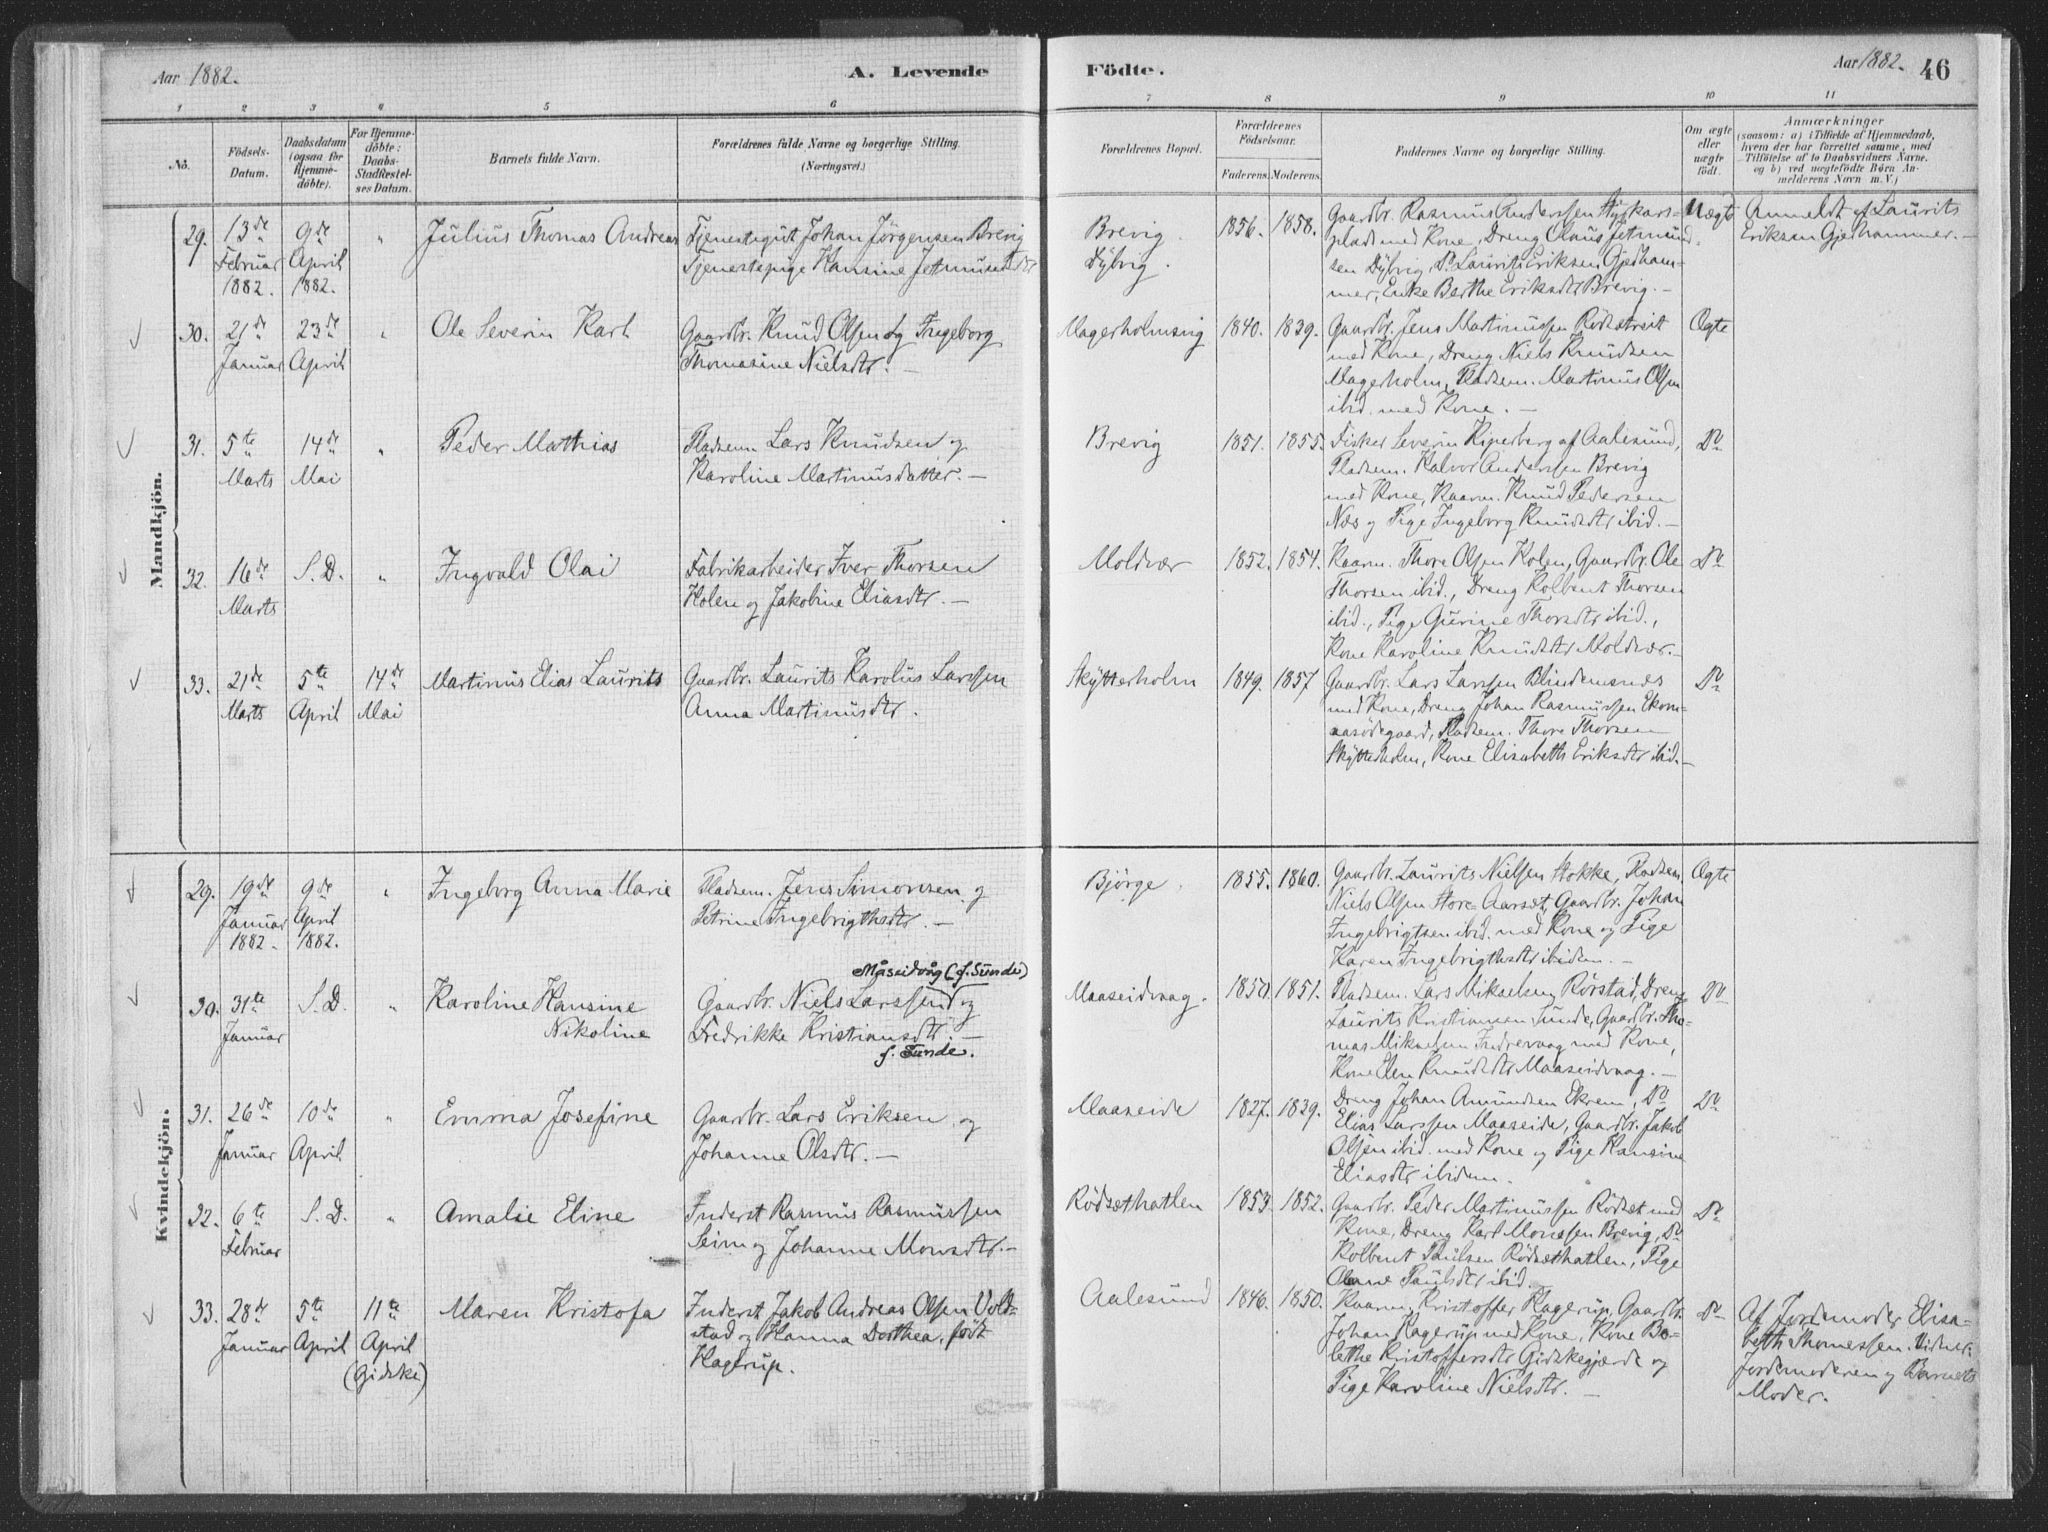 Aar 1882.
A. Levende
Födte.
Aar 1882.
46
1 2 3 4 5 6 7 8 9 10 11
No.
Födsels-
Datum.
Daabsdatum
(ogsaa for
Hjemme-
döbte).
For Hjemme-
döbte:
Daabs-
Stadfæstel-
ses Datum.
Barnets fulde Navn.
Forældrenes fulde Navne og borgerlige Stilling.
(Næringsvei.)
Forældrenes Bopæl.
Forældrenes
Födselsaar.
Faderens. Moderens.
Faddernes Navne og borgerlige Stilling.
Om ægte
eller
uægte
födt.
Anmærkninger
(saasom: a) i Tilfælde af Hjemmedaab,
hvem der har forrettet samme, med
Tilföielse af to Daabsvidners Navne.
og b) ved uægtefödte Börn An-
melderens Navn m. V.)
Mandkjön.
29.
13de
Februar
1882.
9de
April
1882.
"
Julius Thomas Andreas
Tjenestegut Johan Jörgensen Brevig
Tjenestepige Hansine Jetmundsdtr
Brevig.
Dybvig.
1856. 1858.
Gaardbr. Rasmus Anderssen
plads med Kone, Dreng Olaus Jetmund-
sen Dybvig, Do Laurits Eriksen Gjedham-
mer, Enke Berthe Eriksdtr Brevig. —
Uægte
Anmeldt af Laurits
Eriksen Gjedhammer. —
30.
21de
Januar
23de
April
"
Ole Severin Karl
Gaardbr. Knud Olsen og Ingeborg
Thomasine Nielsdtr. —
Magerholmsvig
1840. 1839.
Gaardbr. Jens Martinussen Rödsetreit
med Kone, Dreng Niels Knudsen
Magerholm, Pladsem. Martinus Olsen
ibid. med Kone. —
Ægte
31.
5te
Marts
14de
Mai
"
Peder Mathias
Pladsem Lars Knudsen og
Karoline Martinusdatter. —
Brevig
1851. 1855.
Fisker Severin Riperberg af Aalesund,
Pladsem. Halvor Anderssen Brevig
med Kone, Kaarm. Knud Pedersen
Næs og Pige Ingeborg Knudsdtr ibid. —
Do
32.
16de
Marts
S. D.
"
Ingvald Olai
Fabrikarbeider Iver Thorsen
Holen og Jakobine Eliasdtr. —
Moldvær
1852. 1854.
Kaarm. Thore Olsen Holen, Gaardbr. Ole
Thorsen ibid., Dreng Kolbent Thorsen
ibid., Pige Gurine Thorsdtr ibid.,
Kone Karoline Knudsdtr Moldvær. —
Do
33.
21de
Marts
5te
April
14de
Mai
Martinus Elias Laurits
Gaardbr. Laurits Karolus Larssen
Anna Martinusdtr.
Skytterholm
1849. 1857.
Gaardbr. Lars Larssen Blindemsnes
med Kone, Dreng Johan Rasmussen Ekorn-
aasödegaard, Pladsem. Thore Thorsen
Skytterholm, Kone Elisabeth Eriksdtr ibid. —
Do
Kvindekjön.
29.
19de
Januar
1882.
9de
April
1882.
"
Ingeborg Anna Marie
Pladsem. Jens Simonsen og
Petrine Ingebrigtsdtr. —
Bjørge.
1855. 1860.
Gaardbr. Laurits Nielsen Stokke, Pladsem.
Niels Olsen Store-Aarset, Gaardbr. Johan
Ingebrigtsen ibid. med Kone og Pige
Karen Ingebrigtsdtr ibidem. —
Ægte
30.
31te
Januar
S. D.
"
Karoline Hansine
Nikoline
Måseidvåg (f. Sunde)
Gaardbr. Niels Larssen og
Fredrikke Kristiansdtr. —
f. Sunde.
Maaseidvaag.
1850. 1851.
Pladsem. Lars Mikaelsen Rörstad, Dreng
Laurits Kristiansen Sunde, Gaardbr. Tho-
mas Mikaelsen Indrevaag med Kone,
Kone Elen Knudsdtr Maaseidvaag. —
Do
31.
26de
Januar
10de
April
"
Emma Josefine
Gaardbr. Lars Eriksen og
Johanne Olsdtr. —
Maaseide
1827. 1839.
Dreng Johan Amundsen Ekrem, Do
Elias Larssen Maaseide, Gaardbr. Jakob
Olsen ibid. med Kone og Pige Hansine
Eliasdtr ibidem.
Do
32.
6te
Februar
S. D.
"
Amalie Eline
Inderst Rasmus Rasmussen
Seim og Johanne Monsdtr. —
Rödsethatlen
1853. 1852.
Gaardbr. Peder Martinussen Rödset med
Kone, Dreng Karl Monssen Brevig, Do
Kolbent Paulsen Rödsethatlen, Pige
Oline Paulsdtr ibid.
Do
33.
28de
Januar
5te
April
11te
April
(Gidske)
Maren Kristofa
Inderst Jakob Andreas Olsen Vold-
stad og Hanna Dorthea, født
Hagerup.
Aalesund
1846. 1850.
Kaarm. Kristoffer Hagerup, Gaardbr.
Johan Hagerup med Kone, Kone Bo-
lethe Kristoffersdtr Gidskegjerde og
Pige Karoline Nielsdtr. —
Do
Af Jordemoder Elisa-
beth Thomessen. Vidner:
Jordemoderen og Barnets
Moder.